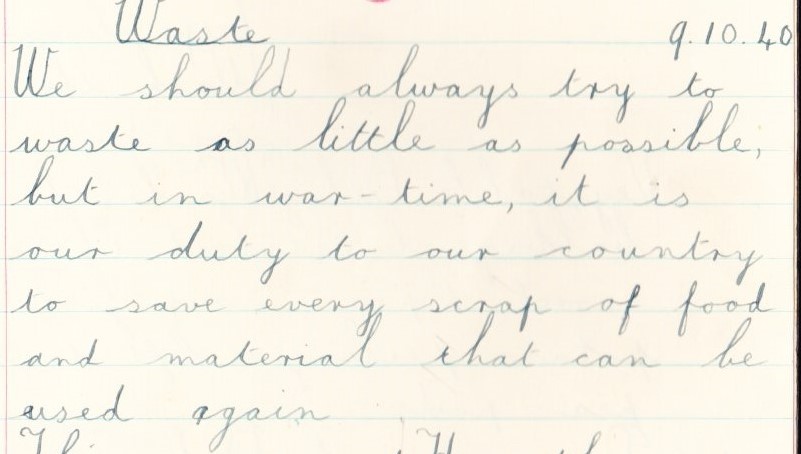 Waste 9.10.40
We should always try to
waste as little as possible;
but in war-time, it is
our duty to our country
to save every scrap of food
and material that can be
used again